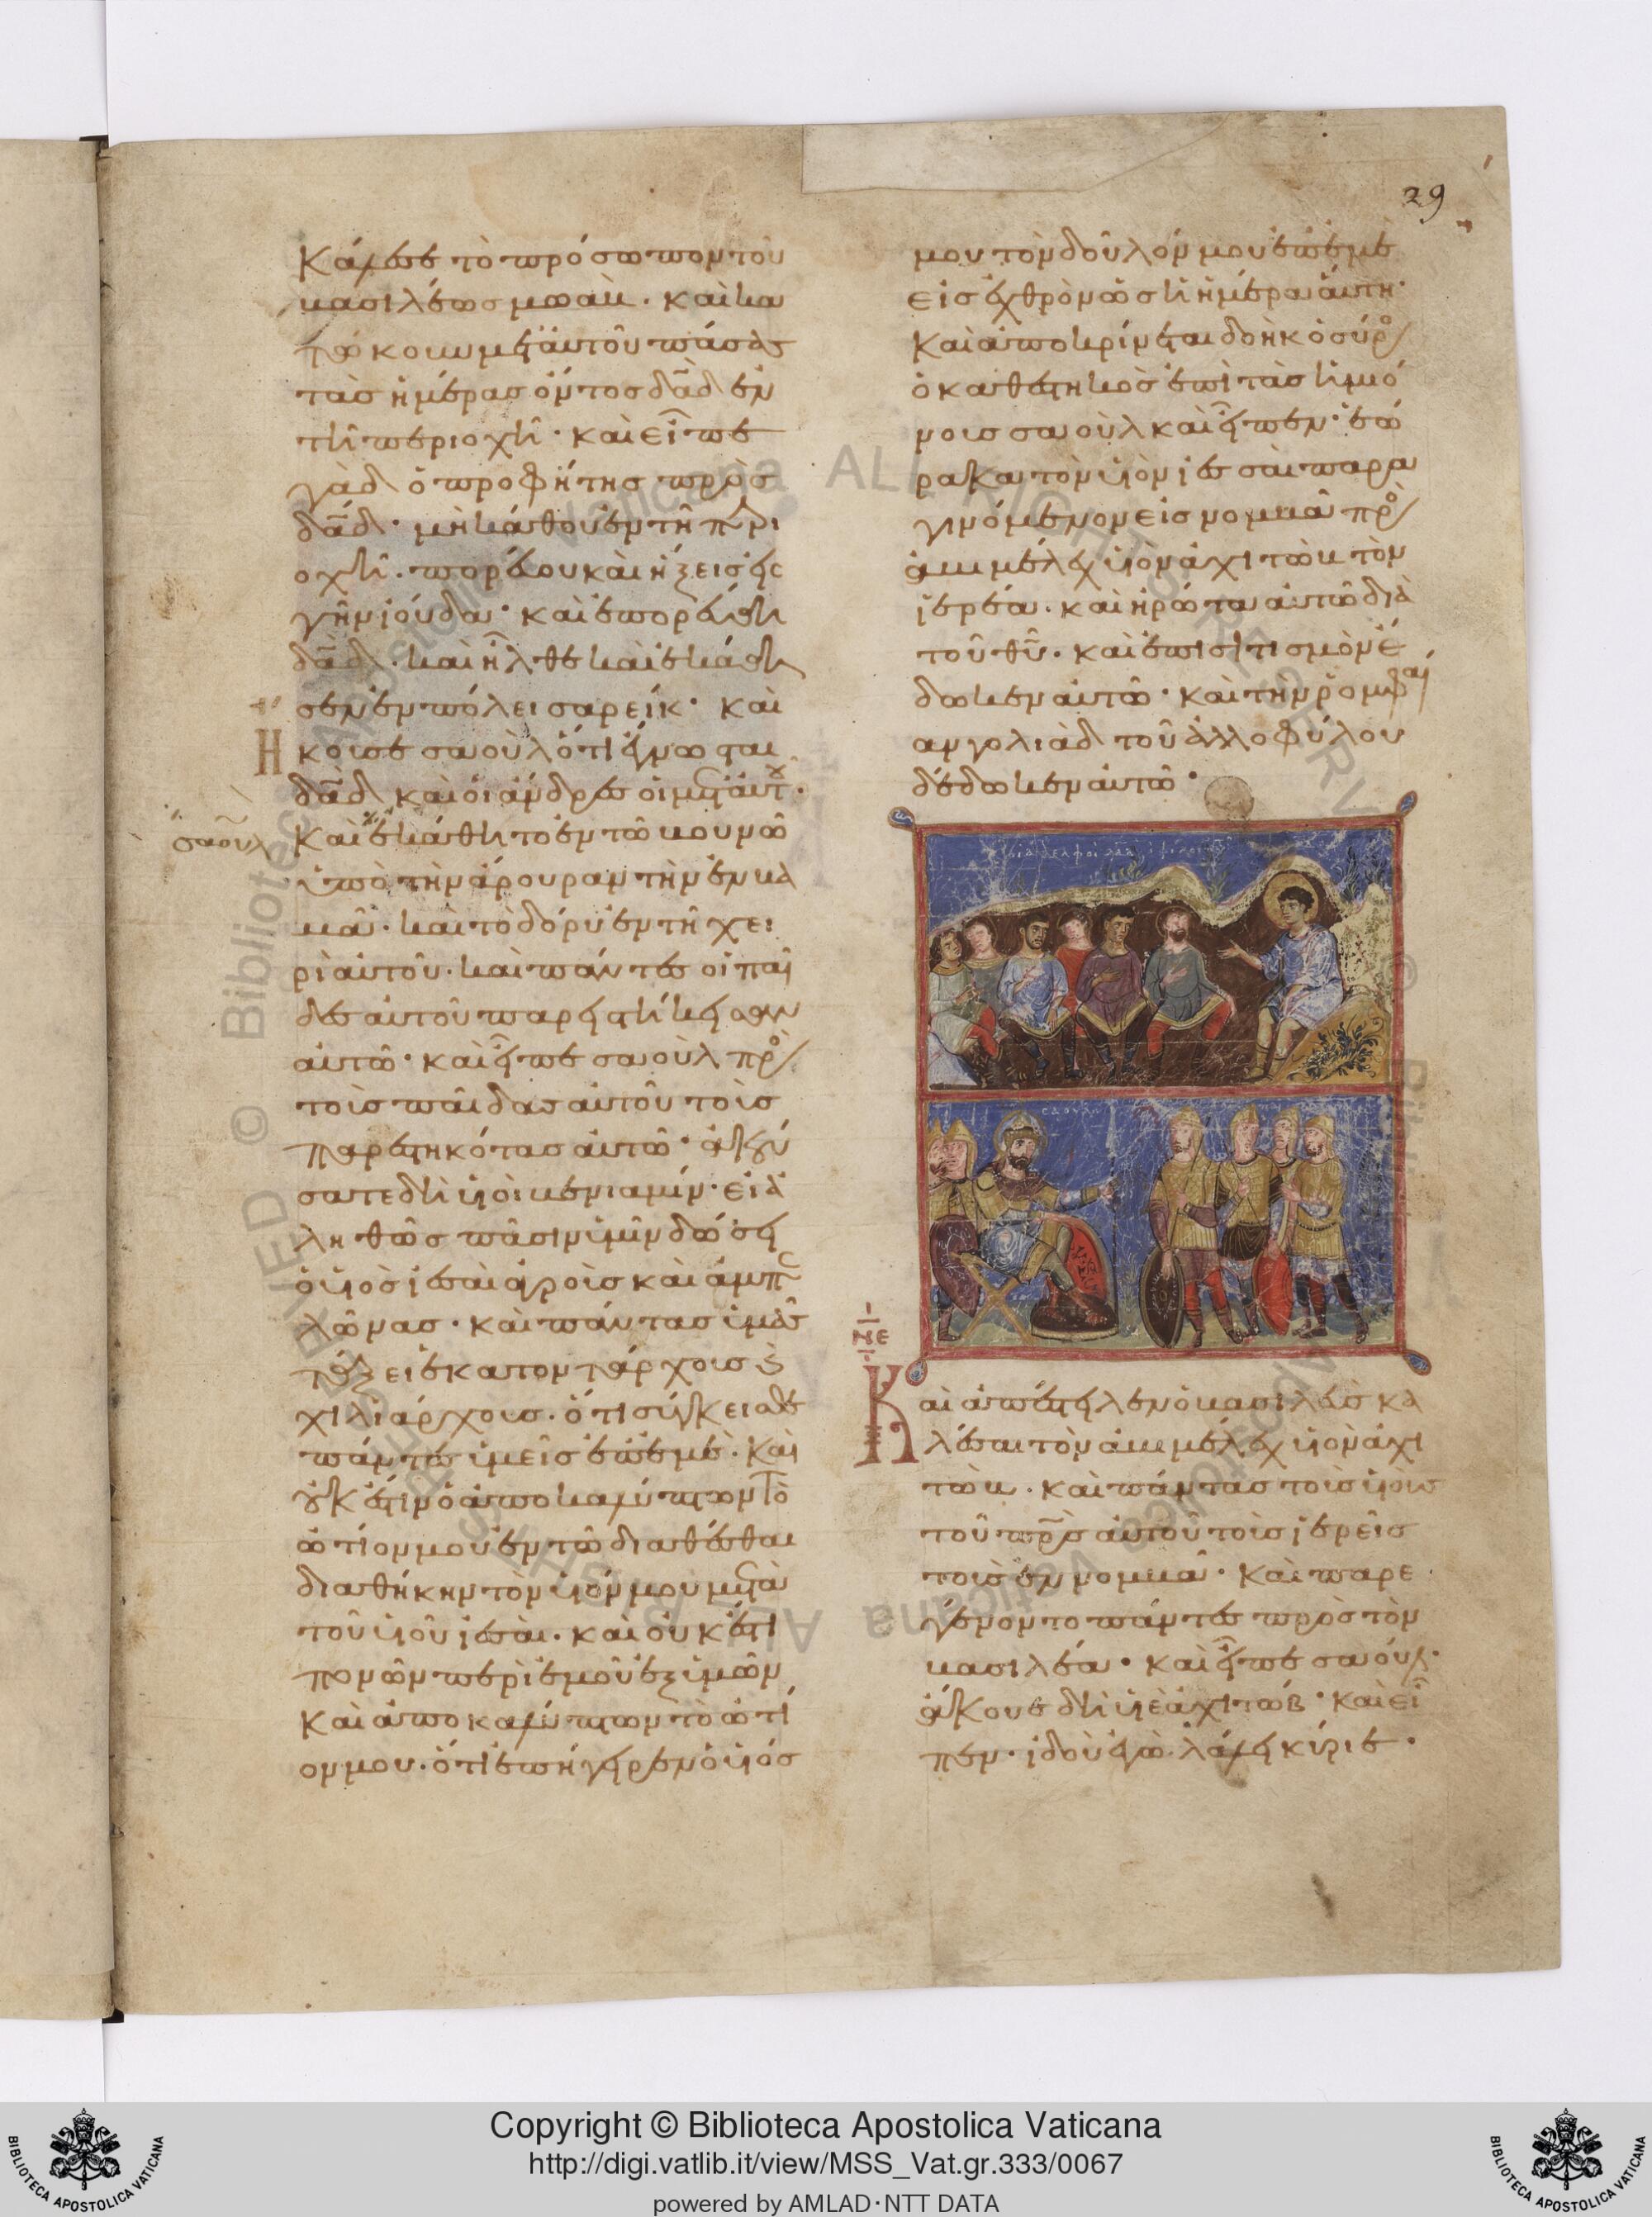 29
Κάλεσε τὸ πρόσωπον τοῦ
βασιλέως μωάβ. καὶ κα
τῴκουν μετ' αὐτοῦ πάσας
τὰς ἡμέρας ὄντος δᾱδ ἐν
τῆ περιοχῆ· καὶ εἶπε
γὰδ ὁ προφήτης πρὸς
δᾱδ· μὴ κάθου ἐν τῆ περι
οχῆ. πορεύου καὶ ἥξεις εἰς
γῆν ἰούδα· καὶ ἐπορεύθη
δᾱδ. καὶ ἦλθε καὶ ἐκάθη
σεν ἐν πόλει σαρείκ· καὶ
Ηκουσε σαοὺλ ὅτι ἔγνωσται
δᾱδ καὶ οἱ ἄνδρες οἱ μετ' αὐτοῦ·
σαοὺλ
Καὶ ἐκάθητο ἐν τῶ βουνῶ
ὑπὸ τὴν ἄρουραν τὴν ἐν βα
μᾶ. καὶ τὸ δόρυ ἐν τῆ χει
ρὶ αὐτοῦ. καὶ πάντες οἱ παῖ
δες αὐτοῦ παρειστήκεισαν
αὐτῶ· καὶ εἶπε σαοὺλ πρὸς
τοὺς παῖδας αὐτοῦ τοὺς
παρεστηκότας αὐτῶ· ἀκού
σατε δὴ υἱοὶ βενιαμίν· εἰ ἀ
ληθῶς πᾶσιν ὑμῖν δώσει
ὁ υἱὸς ἰεσαὶ ἀγροὺς καὶ ἀμπε
λῶνας. καὶ πάντας ὑμᾶς
τάξει ἑκατοντάρχους καὶ
χιλιάρχους. ὅτι σύγκεισθε
πάντες ὑμεῖς ἐπ' ἐμέ. καὶ
οὐκ ἔστιν ὁ ἀποκαλύπτων τὸ
ὠτίον μου ἐν τῶ διαθέσθαι
διαθήκην τὸν υἱόν μου μετὰ
τοῦ υἱοῦ ἰεσαί. καὶ οὐκ ἔστι
πονῶν περὶ ἐμοῦ ἐξ ὑμῶν
Καὶ ἀποκαλύπτων τὸ ὠτί
ον μου. ὅτι ἐπήγειρεν ὁ υἱός
μου τὸν δοῦλόν μου ἐπ' ἐμὲ
εἰς ἐχθρὸν ὡς ἡ ἡμέρα αὕτη·
Καὶ ἀποκρίνεται δοὴκ ὁ σύρος
ὁ καθεστηκὼς ἐπὶ τὰς ἡμιό
νους σαοὺλ καὶ εἶπεν· ἑώ
ρακα τὸν υἱὸν ἰεσσαὶ παρα
γινόμενον εἰς νομμᾶ πρὸς
ἀβιμέλεχ υἱὸν ἀχιτὼβ τὸν
ἱερέα. καὶ ἠρώτα αὐτῶ διὰ
τοῦ θῡ. καὶ ἐπισιτισμὸν ἔ
δωκεν αὐτῶ· καὶ τὴν ῥομφαί
αν γολιὰδ τοῦ ἀλλοφύλου
δέδωκεν αὐτῶ·
σαουλ
νε
Καὶ ἀπέστειλεν ὁ βασιλεὺς κα
λέσαι τὸν ἀβιμέλεχ υἱὸν ἀχι
τώβ. καὶ πάντας τοὺς υἱοὺς
τοῦ πρ̄ς αὐτοῦ τοὺς ἱερεῖς
τοὺς ἐν νομμᾶ. καὶ παρε
γένοντο πάντες πρὸς τὸν
βασιλέα· καὶ εἶπε σαούλ·
ἄκουε δὴ υἱὲ ἀχιτώβ· καὶ εἶ
πεν. ἰδοὺ ἐγὼ. λάλει κύριε.
ALL RIGHTS RESERVED © Biblioteca Apostolica Vaticana
Copyright © Biblioteca Apostolica Vaticana
http://digi.vatlib.it/view/MSS_Vat.gr.333/0067
powered by AMLAD·NTT DATA
BIBLIOTECA APOSTOLICA VATICANA
BIBLIOTECA APOSTOLICA VATICANA